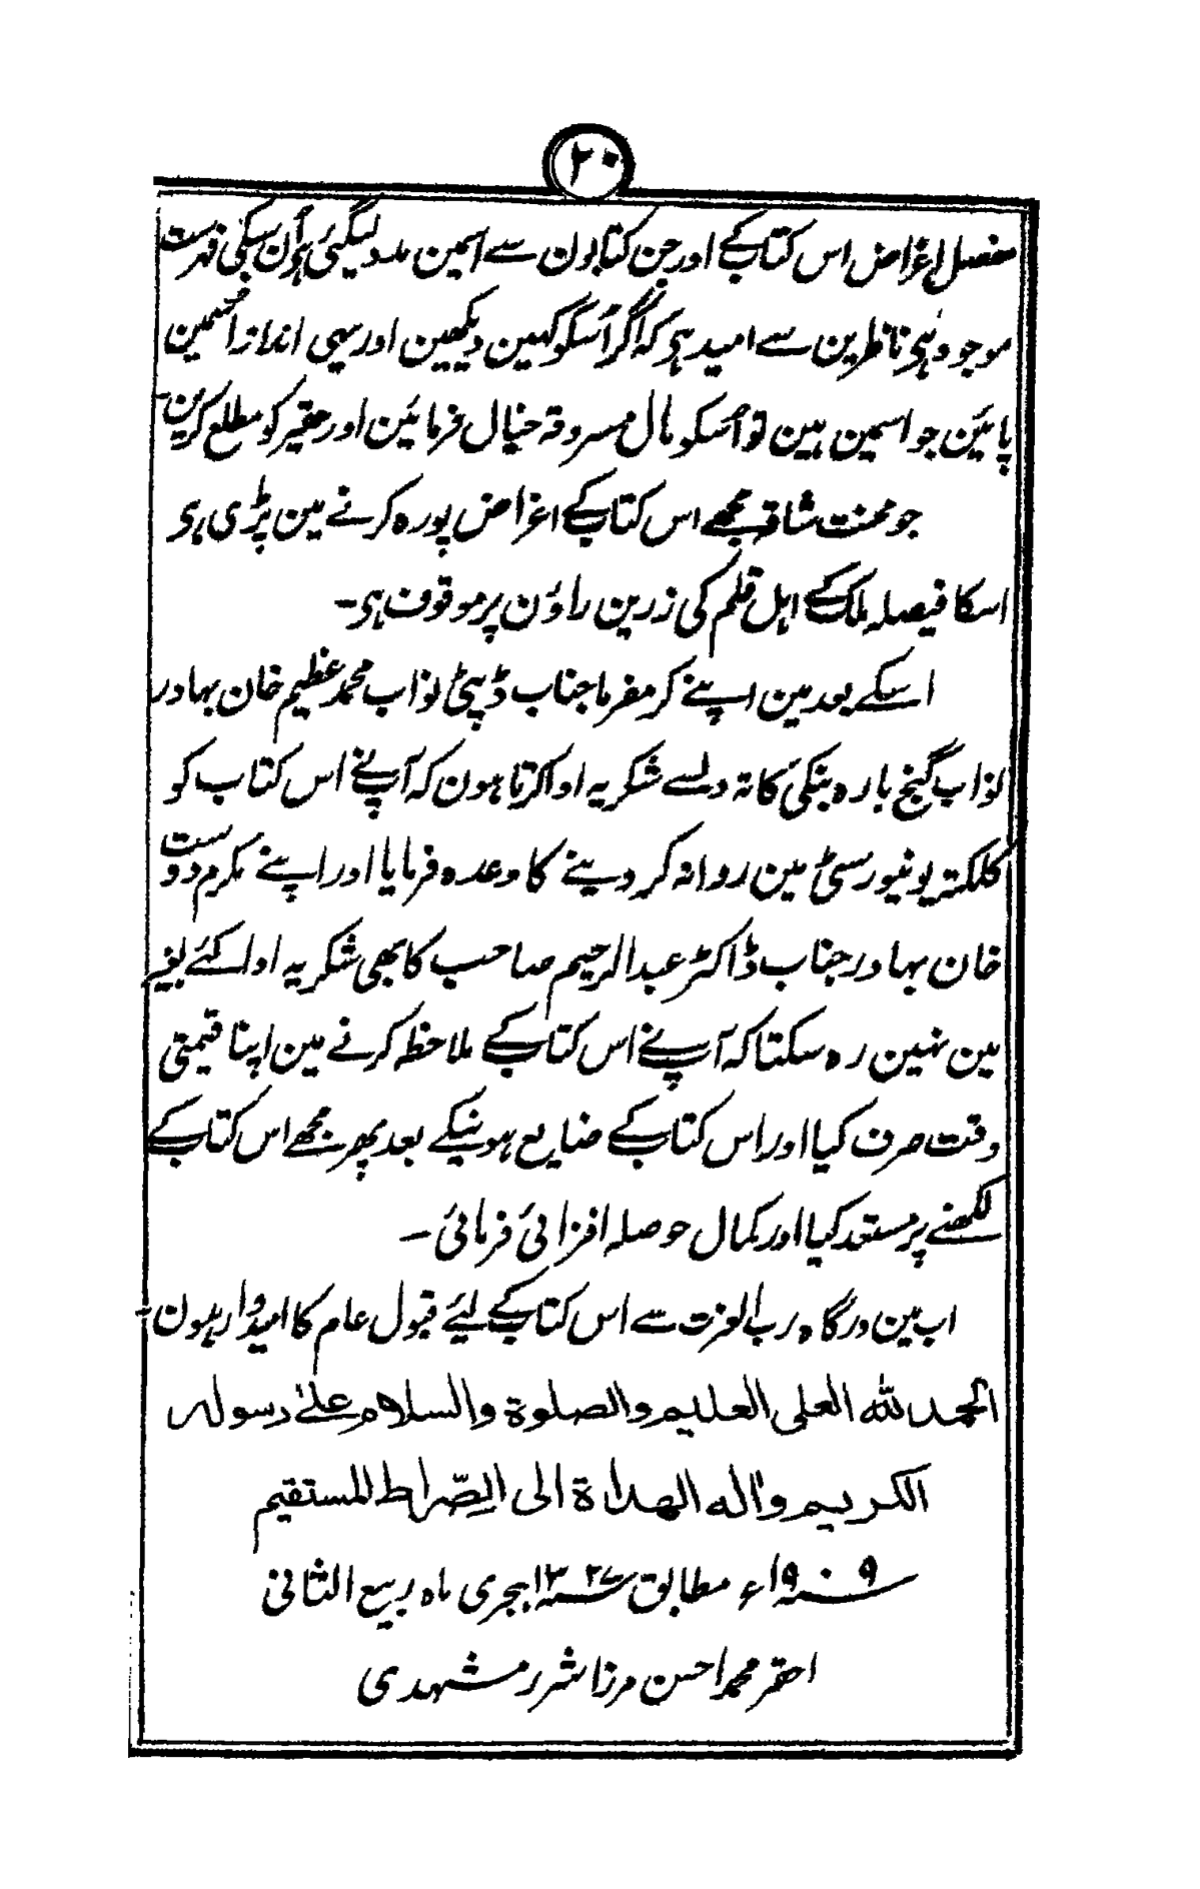 ۲۰
مفصل اغراض اس کتاب کے اور جن کتابون سے اسمین مدد لیگئی ہو اُن سبکی فہرست
موجود ہی ناظرین سے امید ہی کہ اگر اُسکو کہین دیکھین اور یہی انداز اسمین
پائین جو اسمین ہین تو اُسکو مال مسروقہ خیال فرمائین اور حقیر کو مطلع کرین۔
جو محنت شاقہ مجھے اس کتاب کے اغراض پورہ کرنے مین پڑی ہی
اسکا فیصلہ ملک کے اہل قلم کی زرین راؤن پر موقوف ہی۔
اسکے بعد مین اپنے کرمفرما جناب ڈپٹی نواب محمد عظیم خان بہادر
نواب گنج بارہ بنکی کا تہ دلسے شکریہ ادا کرتا ہون کہ آپنے اس کتاب کو
کلکتہ یونیورسٹی مین روانہ کر دینے کا وعدہ فرمایا اور اپنے مکرم دوست
خان بہادر جناب ڈاکٹر عبدالرحیم صاحب کا بھی شکریہ ادا کئے بغیر
مین نہین رہ سکتا کہ آپنے اس کتاب کے ملاحظہ کرنے مین اپنا قیمتی
وقت صرف کیا اور اس کتاب کے ضایع ہونیکے بعد پھر مجھے اس کتاب کے
لکھنے پر مستعد کیا اور کمال حوصلہ افزائی فرمائی۔
اب مین درگاہ رب العزت سے اس کتاب کے لئے قبول عام کا امیدوار ہون۔
الحمد للہ العلی العلیم والصلوۃ والسلام علیٰ رسولہ
الکریم واٰلہ الھداۃ الی الصّراط المستقیم
۱۹۰۹ء مطابق ۱۳۲۷ ہجری ماہ ربیع الثانی
احقر محمد احسن مرزا شرر مشہدی